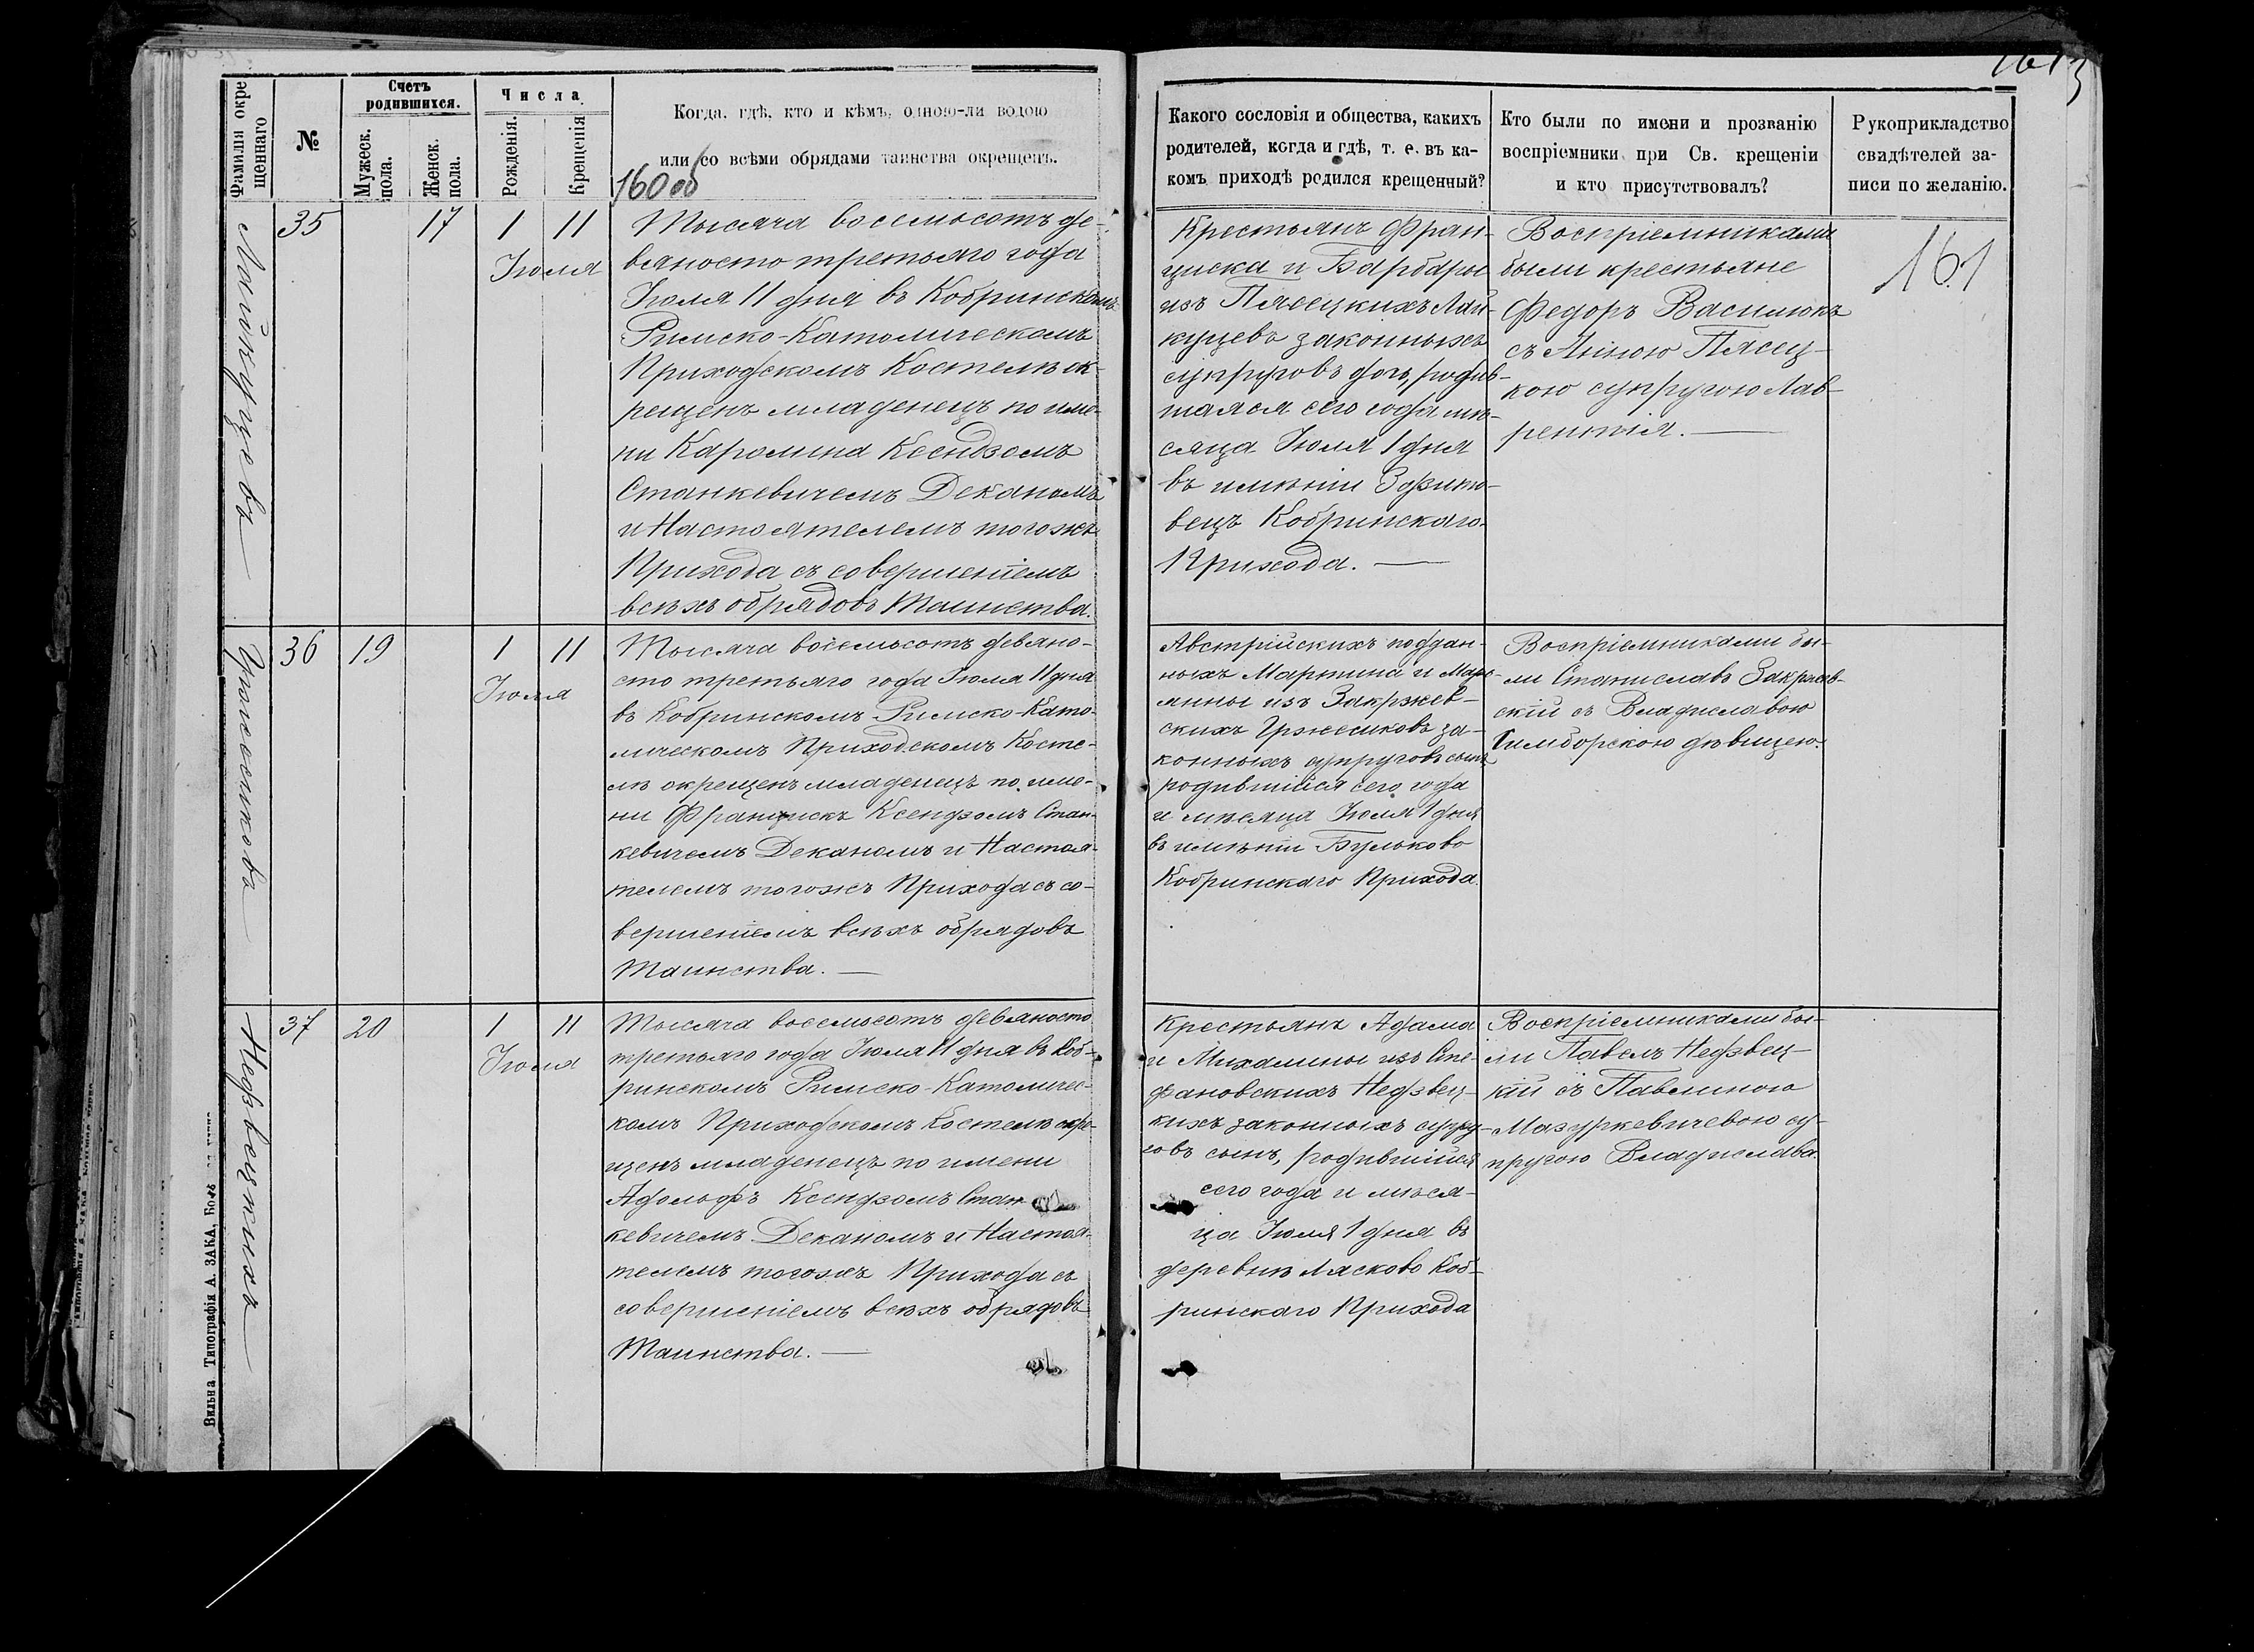 Фамилія окре
щеннаго
№
Счетъ
родившихся.
Мужеск.
пола.
Женск.
пола.
Числа
Рожденія.
Крещенія
Когда, гдѣ, кто и кѣмъ, одною-ли водою
или со всѣми обрядами таинства окрещенъ.
160 об
Лайкуцевъ
35
17
1
11
Іюля
Тысяча восемьсотъ де-
вяносто третьяго года
Іюля 11 дня въ Кобринскомъ
Римско-Католическомъ
Приходскомъ Костелѣ ок-
рещенъ младенецъ по име-
ни Каролина Ксендзомъ
Станкевичемъ Деканомъ
и Настоятелемъ тогожъ
Прихода съ совершеніемъ
всѣхъ обрядовъ Таинства.
36
19
1
11
Іюля
Тысяча восемьсотъ девяно-
сто третьяго года Іюля 11 дня
въ Кобринскомъ Римско-Като-
лическомъ Приходскомъ Косте-
лѣ окрещенъ младенецъ по име-
ни Францискъ Ксендзомъ Стан-
кевичемъ Деканомъ и Настоя-
телемъ тогожъ Прихода съ со-
вершеніемъ всѣхъ обрядовъ
Таинства.
Недзвецкихъ
37
20
1
11
Іюля
Тысяча восемьсотъ девяносто
третьяго года Іюля 11 дня въ Коб-
ринскомъ Римско-Католичес-
комъ Приходскомъ Костелѣ окре-
щенъ младенецъ по имени
Адольфъ Ксендзомъ Стан
кевичемъ Деканомъ и Настоя-
телемъ тогожъ Прихода съ
совершеніемъ всѣхъ обрядовъ
Таинства.
Вильна Типографія А. ЗАКА,
Какого сословія и общества, какихъ
родителей, когда и гдѣ, т. е. въ ка-
комъ приходѣ родился крещенный?
Кто были по имени и прозванію
воспріемники при Св. крещеніи
и кто присутствовалъ?
Рукоприкладство
свидѣтелей за-
писи по желанію.
Крестьянъ Фран-
циска и Барбары
изъ Пясецкихъ Лай-
куцевъ законныхъ
супруговъ дочь, родив-
шаяся сего года мѣ-
сяца Іюля 1 дня
въ имѣніи Зосимо-
вецъ Кобринскаго
Прихода.
Воспріемниками
были крестьяне
Федоръ Василюкъ
съ Анною Пясец-
кою супругою Лав-
рентія.
161
Австрійскихъ поддан-
ныхъ Мартина и
изъ Закржев-
скихъ за-
конныхъ супруговъ сынъ
родившійся сего года
и мѣсяца Іюля 1 дня
въ имѣніи Бульково
Кобринскаго Прихода.
Воспріемниками бы-
ли Станиславъ Закржев-
скій съ Владиславою
Цимборскою дѣвицею.
Крестьянъ Адама
и Михалины изъ Сте-
фановскихъ Недзвец-
кихъ законныхъ супру-
говъ сынъ, родившійся
сего года и мѣся-
ца Іюля 1 дня въ
деревнѣ Лясково Коб-
ринскаго Прихода
Воспріемниками бы-
ли Павелъ Недзвец-
кій съ Павлиною
Мазуркевичевою су-
пругою Владислава.